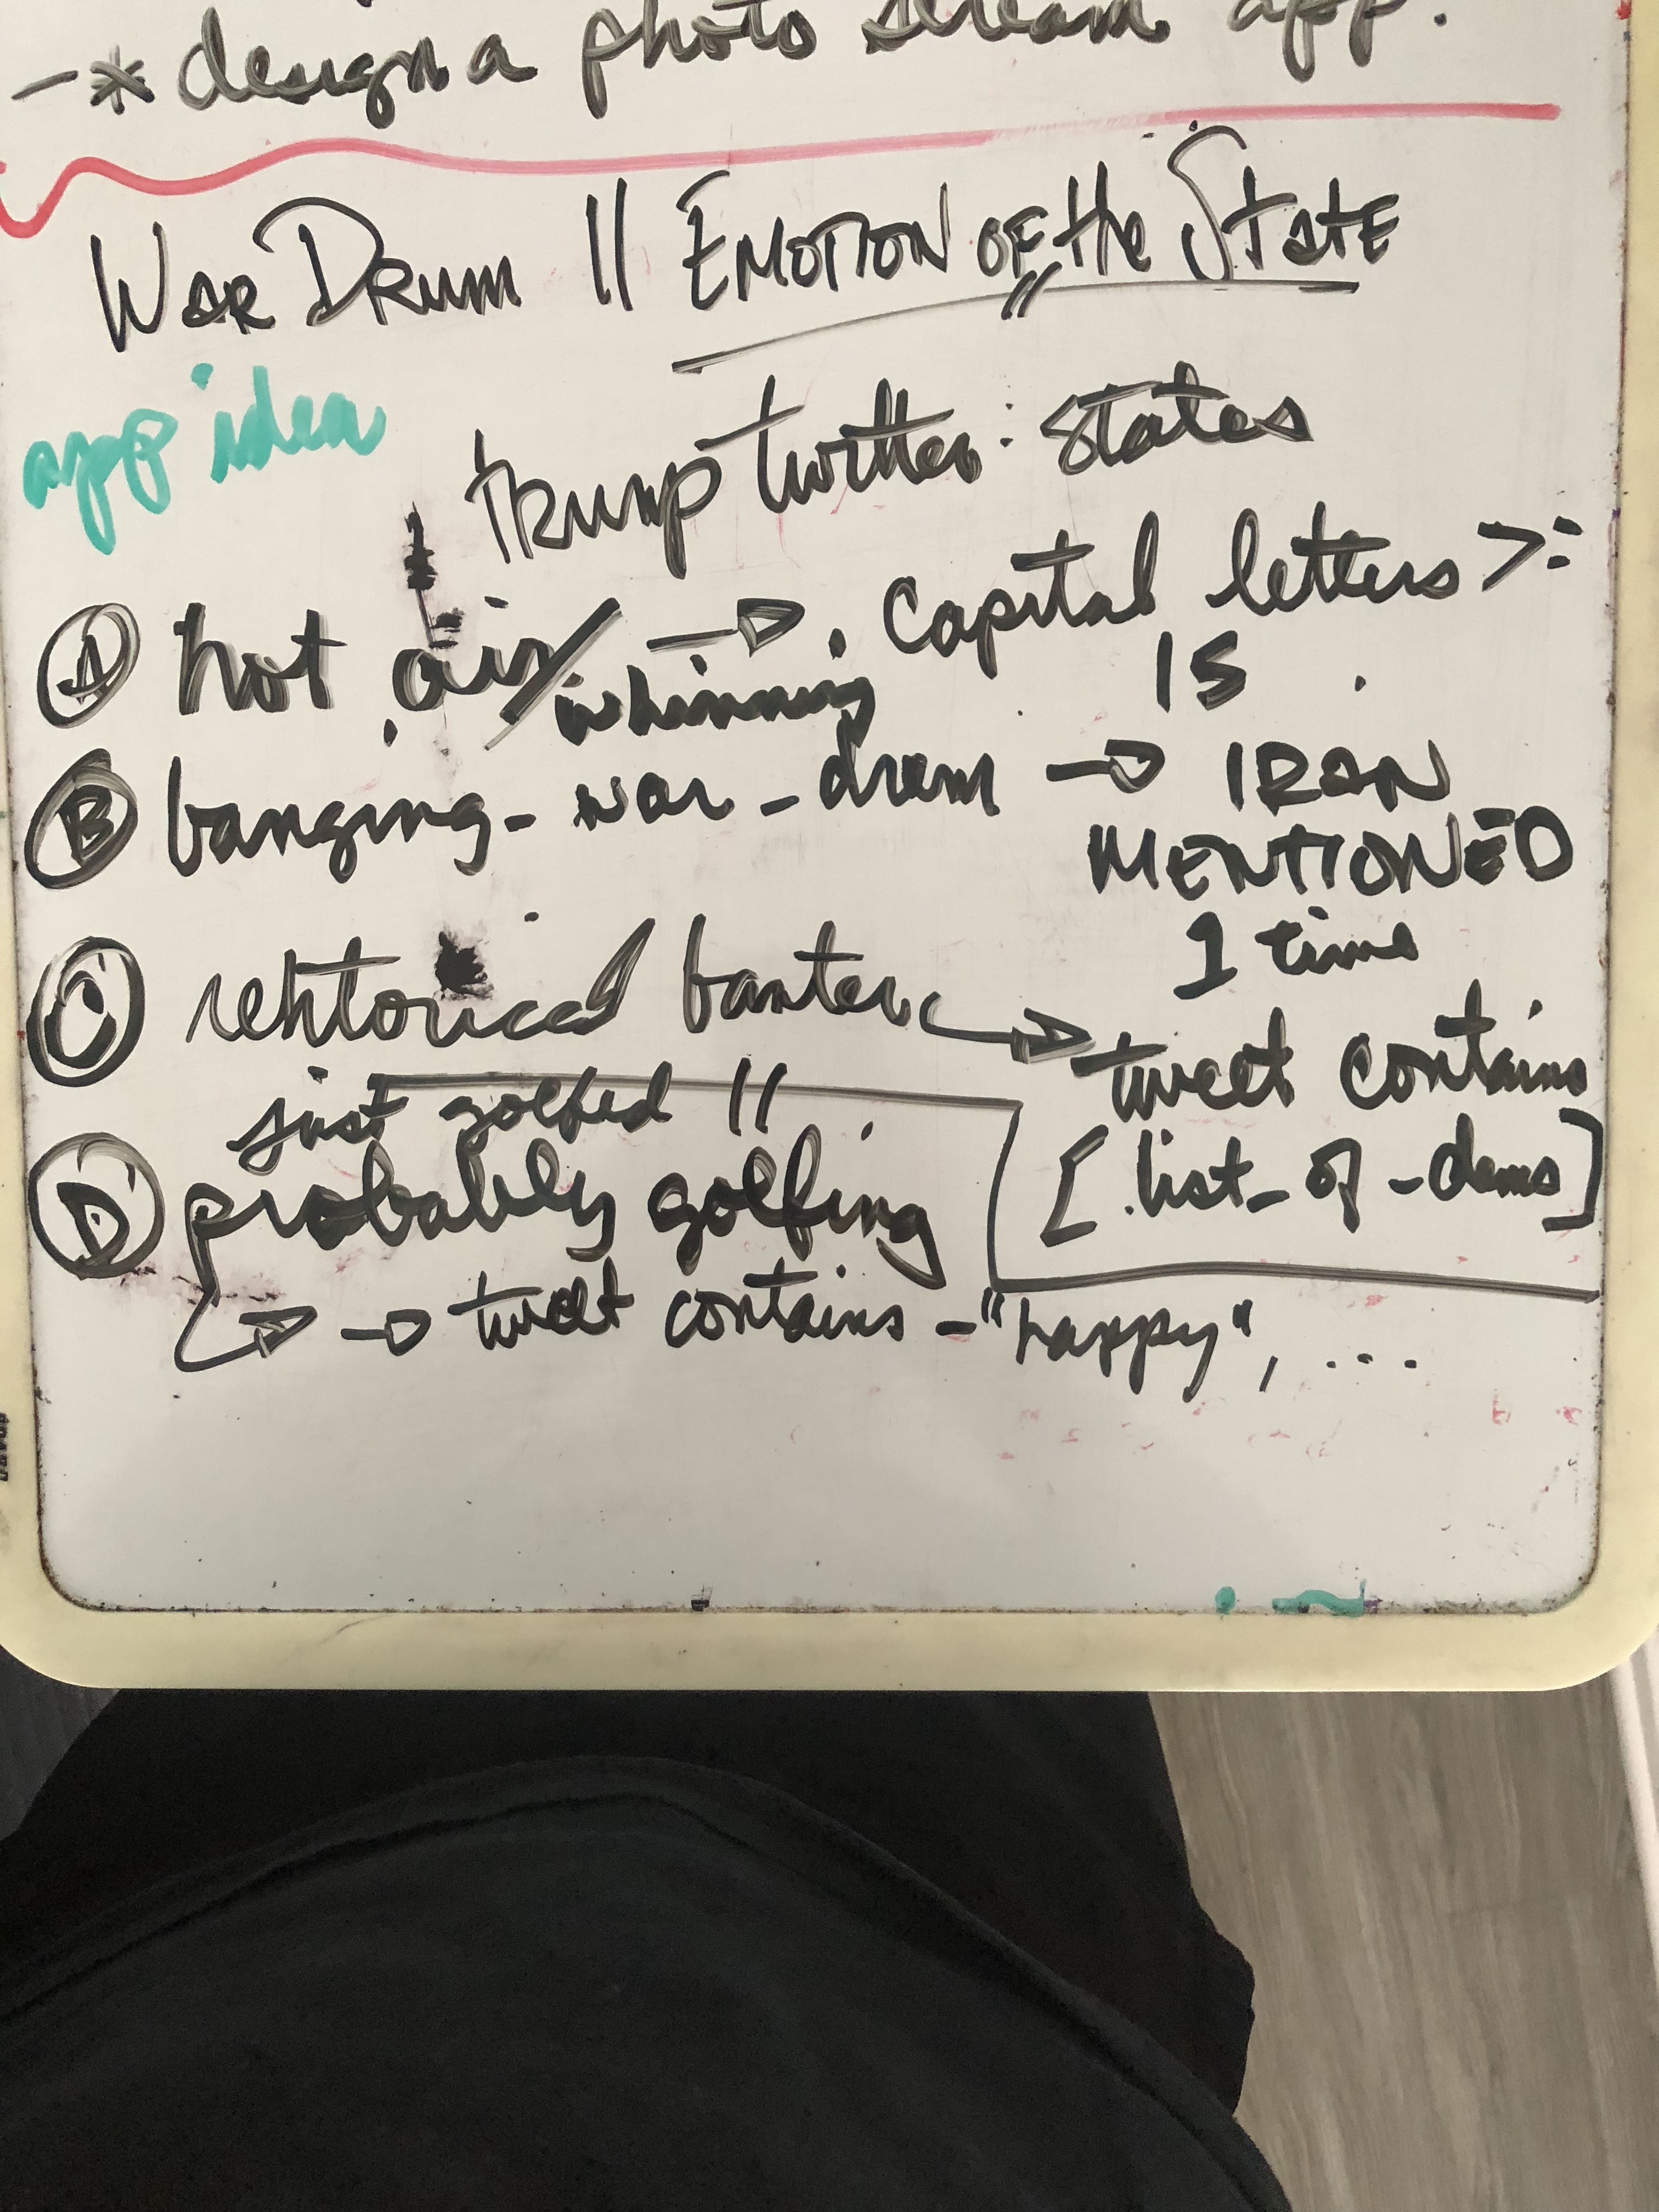 -* design a photo stream app.
War Drum || EMOTION OF the STATE
app idea
Trump twitter: states
A hot air/whinning → . Capital letters >= 15
B banging_war_drum → IRAN MENTIONED 1 time
C rehtorical banter → tweet contains [list_of_dems]
D just golfed || probably golfing
→ → tweet contains - "happy", ...